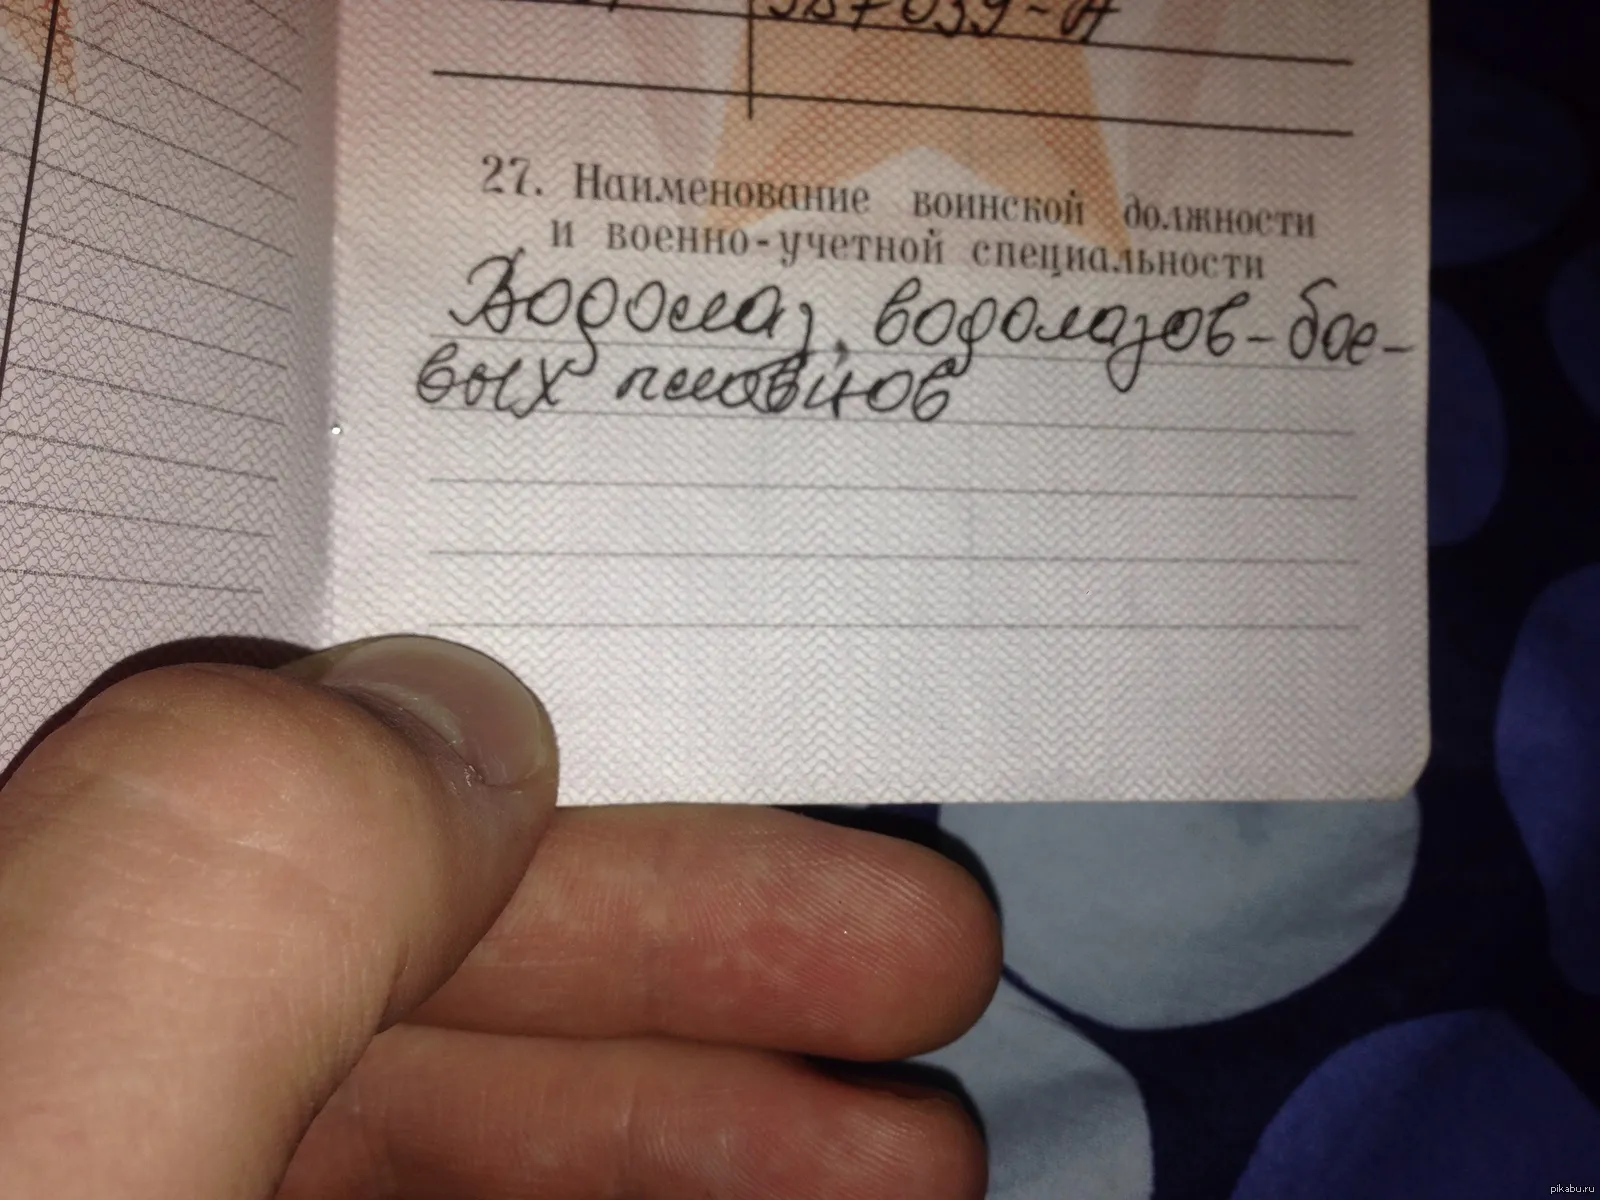 387039-А
27. Наименование воинской должности
и военно-учетной специальности
Водолаз, водолазов-бое-
вых пловцов
pikabu.ru